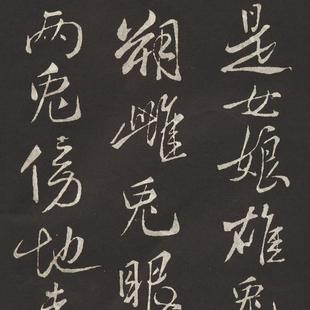 是女娘雄兔
朔雌兔眼
两兔傍地走